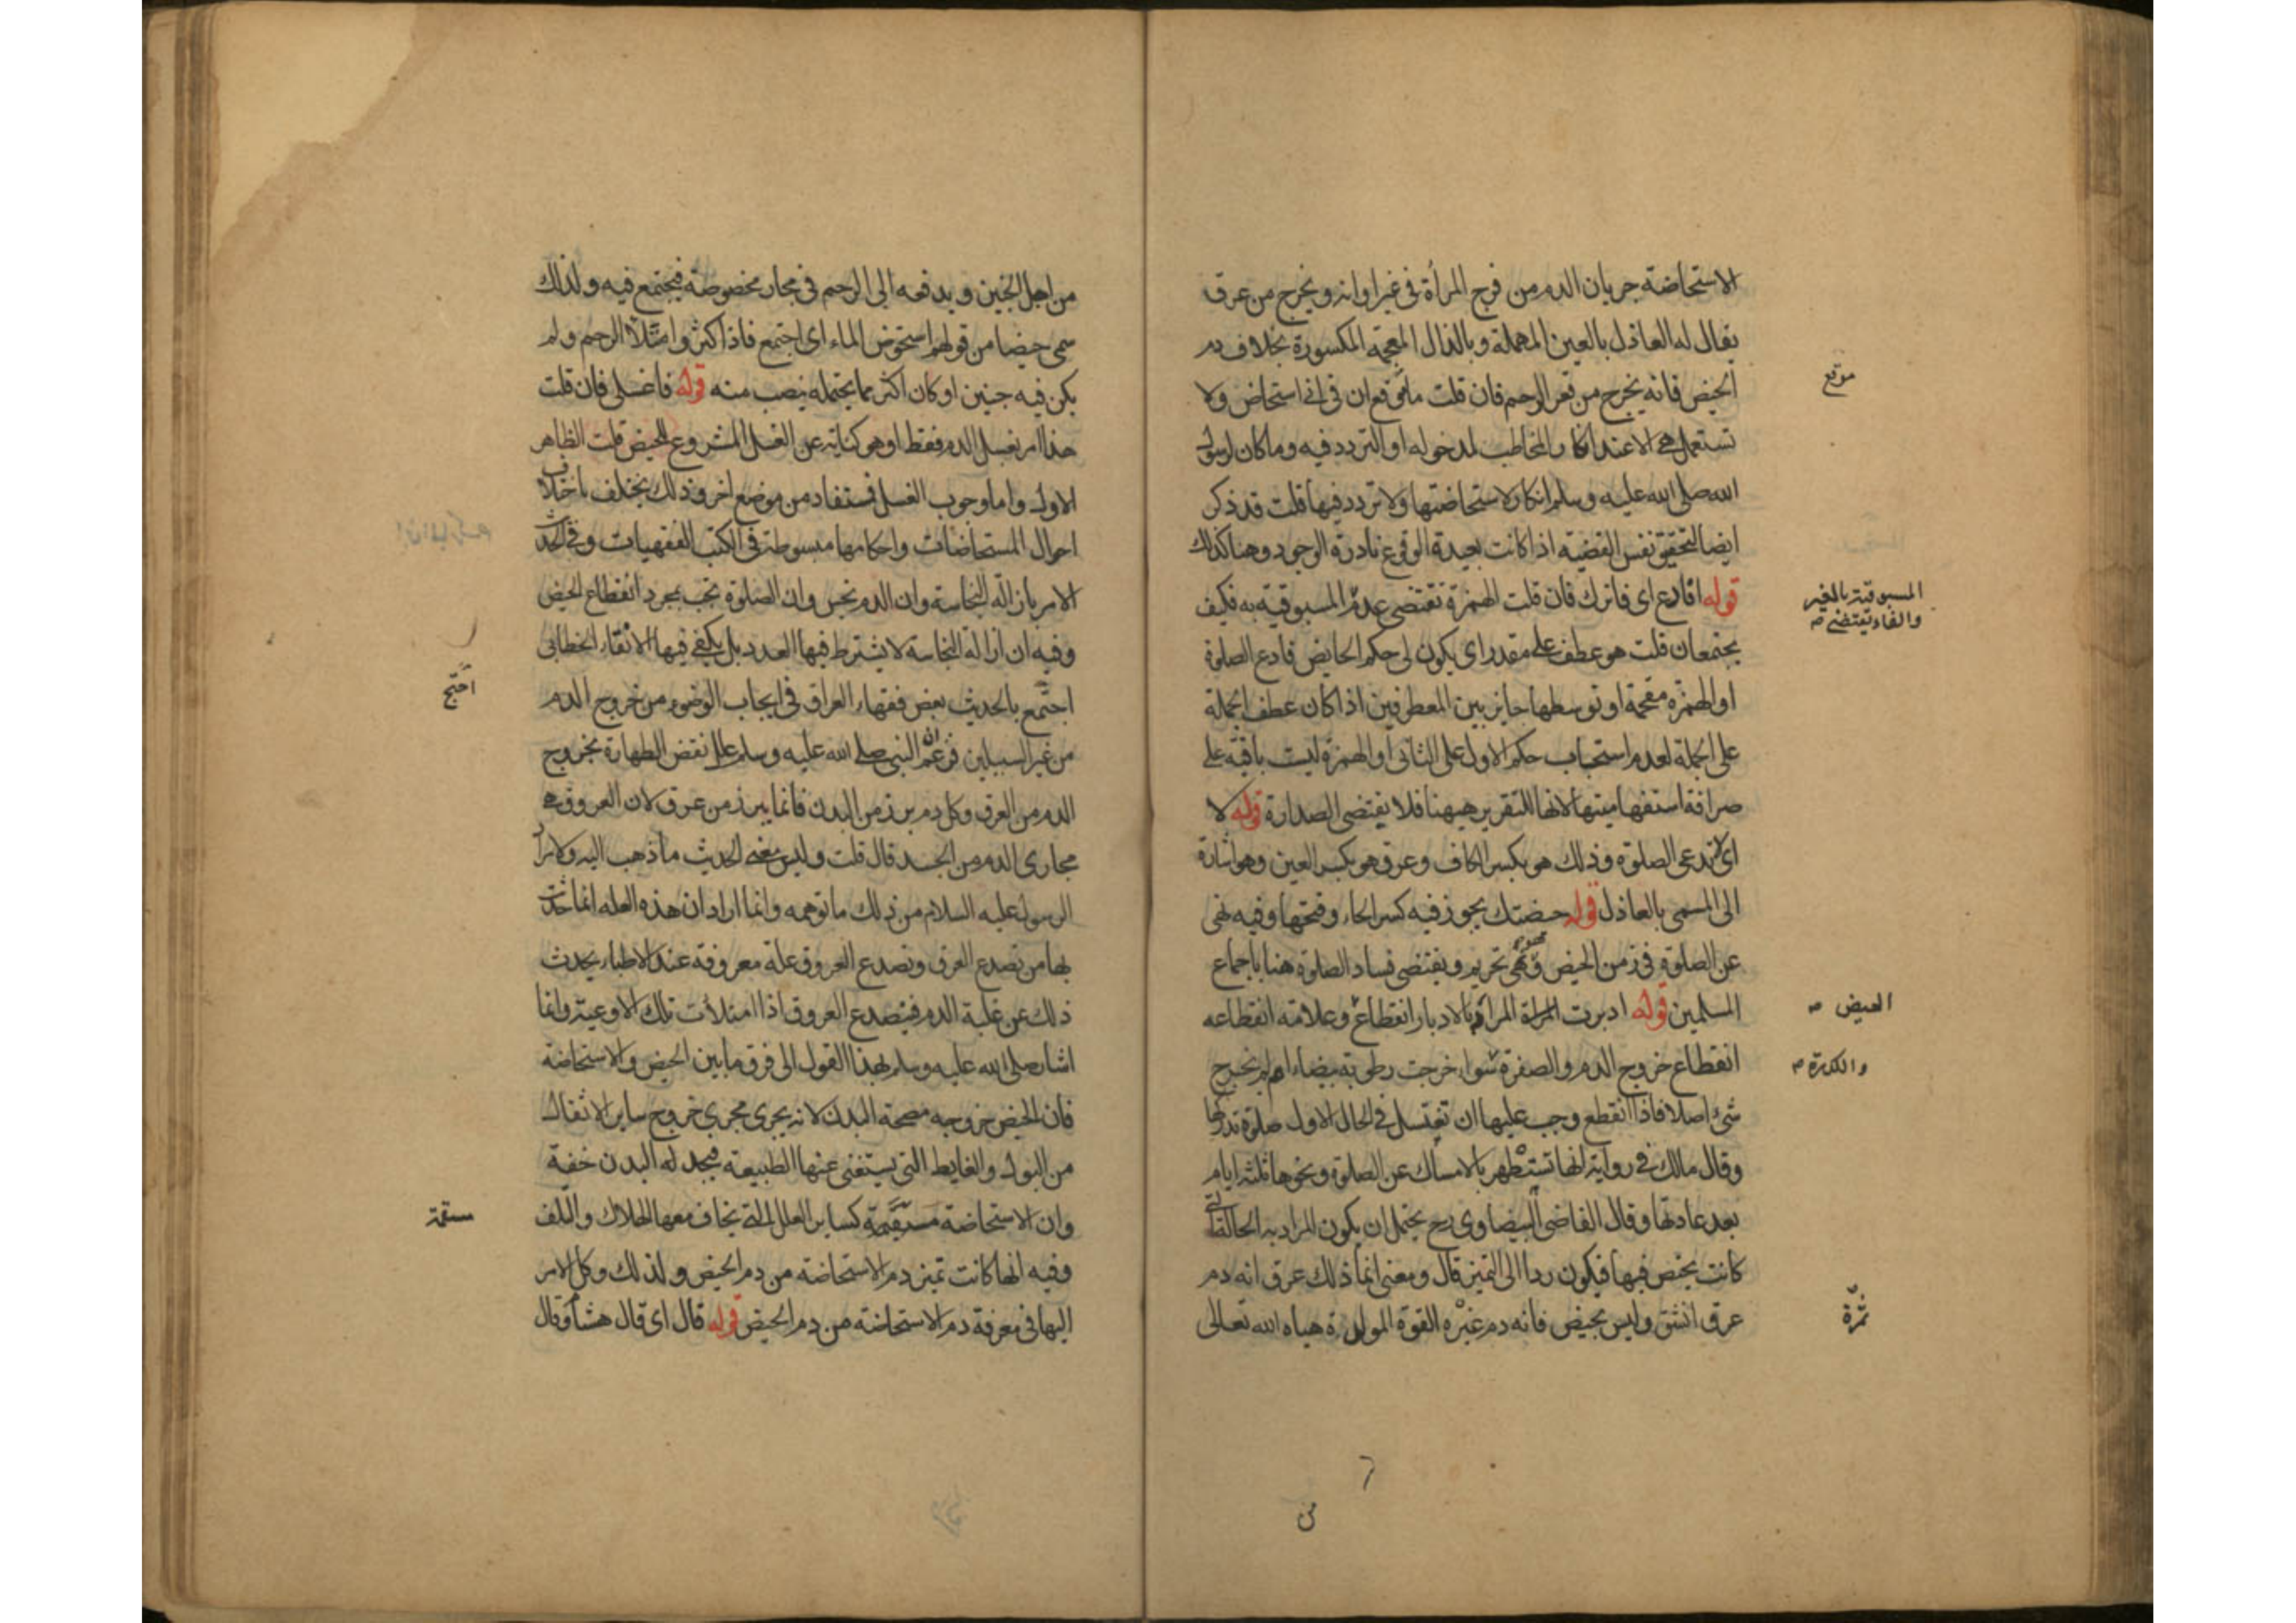 الاستحاضة جريان الدم من فرج المرأة في غير اوانه ويخرج من عرق
يقال له العاذل بالعين المهملة وبالذال المعجمة المكسورة بخلاف دم
الحيض فانه يخرج من قعر الرحم فان قلت ما موقع ان في اني استحاض ولا
موقع
تستعمل هي الا عند انكار المخاطب لمدخوله او التردد فيه وما كان لرسول
الله صلى الله عليه وسلم انكار لاستحاضتها ولا تردد فيها قلت قد ذكر
ايضا لتحقيق نفس القضية اذا كانت بعيدة الوقوع نادرة الوجود وهنا كذلك
قوله افادع اى فاترك فان قلت الهمزة تقتضى عدم المسبوقية به فكيف
المسبوقية بالغير
والفاء تقتضى صـ
يجتمعان قلت هو عطف على مقدر اى يكون لى حكم الحايض فادع الصلوة
او الهمزة مقحمة او توسطها جايز بين المعطوفين اذا كان عطف الجملة
على الجملة لعدم استحباب حكم الاول على الثانى او الهمزة ليست باقية على
صرافة استفهاميتها لانها للتقرير هيهنا فلا يقتضى الصدارة قوله لا
اى لا تدعى الصلوة وذلك هو بكسر الكاف وعرق هو بكسر العين وهو اشارة
الى المسمى بالعاذل قوله حيضتك يجوز فيه كسر الحاء وفتحها وفيه نهى
عن الصلوة فى زمن الحيض وهو نهى تحريم ويقتضى فساد الصلوة هنا باجماع
المسلمين قوله ادبرت المراد بالادبار انقطاع وعلامة انقطاعه
الحيض صـ
انقطاع خروج الدم والصفرة سواء خرجت رطوبة بيضاء ام لم يخرج
والكدرة صـ
شئ اصلا فاذا انقطع وجب عليها ان تغتسل فى الحال الاول صلوة تدركها
وقال مالك فى رواية انها تستظهر بالامساك عن الصلوة ونحوها ثلثة ايام
بعد عادتها وقال القاضى البيضاوى رح يحتمل ان يكون المراد به الحالة التى
كانت يحيض فيها فيكون ردا الى التميز قال ومعنى انما ذلك عرق انه دم
عرق انشق وليس بحيض فانه دم غيره القوة المولدة هياه الله تعالى
من اجل الجنين ويدفعه الى الرحم فى مجار مخصوصة فيجتمع فيه ولذلك
سمى حيضا من قولهم استحوض الماء اى اجتمع فاذا كثر وامتلأ الرحم ولم
يكن فيه جنين او كان اكثر مما يحتمله ينصب منه قوله فاغسلى فان قلت
هذا امر بغسل الدم فقط او هو كناية عن الغسل المشروع للحيض قلت الظاهر
الاول واما وجوب الغسل فستفاد من موضع اخر وذلك يختلف باختلاف
احوال المستحاضات واحكامها مبسوطة فى الكتب الفقهيات وفى الحديث
الامر بازالة النجاسة وان الدم نجس وان الصلوة تجب بمجرد انقطاع الحيض
وفيه ان ازالة النجاسة لا يشترط فيها العدد بل يكفى فيها الانقاء الخطابى
اجتمع بالحديث بعض فقهاء العراق فى ايجاب الوضوء من خروج الدم
احتج
من غير السبيلين فزعم ان النبى صلى الله عليه وسلم علل نقض الطهارة بخروج
الدم من العرق وكل دم برز من البدن فانما يبرز من عرق لان العروق هى
مجارى الدم من الجسد قال قلت وليس معنى الحديث ما ذهب اليه ولا مراد
الرسول عليه السلام من ذلك ما توهمه وانما اراد ان هذه العلة انما حدثت
بها من تصدع العرق وتصدع العروق علة معروفة عند الاطباء يحدث
ذلك عن غلبة الدم فيتصدع العروق اذا امتلأت تلك الاوعية وانما
اشار صلى الله عليه وسلم بهذا القول الى فرق ما بين الحيض والاستحاضة
فان الحيض خروجه مصحة البدن لانه يجرى مجرى خروج ساير الاثفال
من البول والغايط التى يستغنى عنها الطبيعة فيجد له البدن خفية
وان الاستحاضة مستقيمة كساير العلل التى يخاف معها الهلاك والتلف
مسقمة
وفيه انها كانت تميز دم الاستحاضة من دم الحيض ولذلك وكل الامر
اليها فى معرفة دم الاستحاضة من دم الحيض قوله قال اى قال هشام وقال